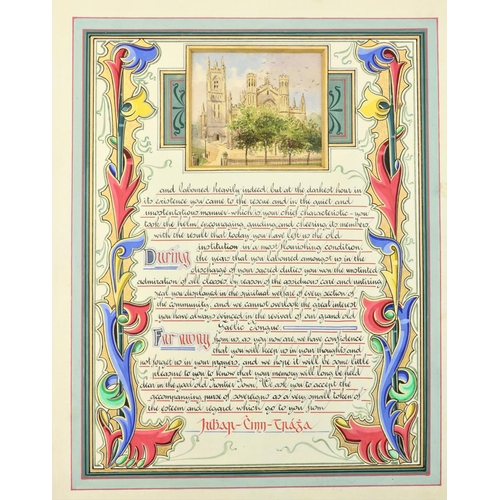 and laboured heavily indeed, but at the darkest hour in
its existence you came to the rescue and in the quiet and
unostentatious manner which is your chief characteristic you
took the helm, encouraging, guiding, and cheering its members
with the result that today you have left us the old
institution in a most flourishing condition.
During the years that you laboured amongst us in the
discharge of your sacred duties you won the unstinted
admiration of all classes by reason of the assiduous care and untiring
zeal you displayed in the spiritual welfare of every section of
the community, and we cannot overlook the great interest
you have always evinced in the revival of our grand old
Gaelic Tongue.
Far away from us, as you now are, we have confidence
that you will keep us in your thoughts and
not forget us in your prayers, and we hope it will be some little
pleasure to you to know that your memory will long be held
dear in the good old Frontier Town. We ask you to accept the
accompanying purse of sovereigns as a very small token of
the esteem and regard which go to you from
Iubhar-Cinn-Trágha